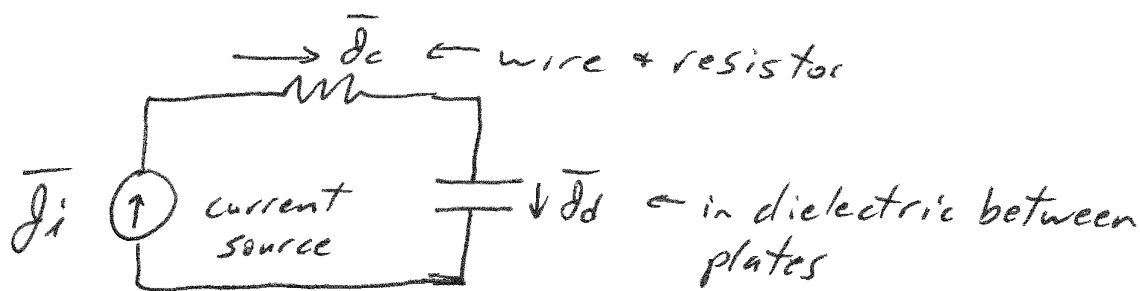 J̅c ← wire + resistor
J̅i
current
source
J̅d ← in dielectric between
plates